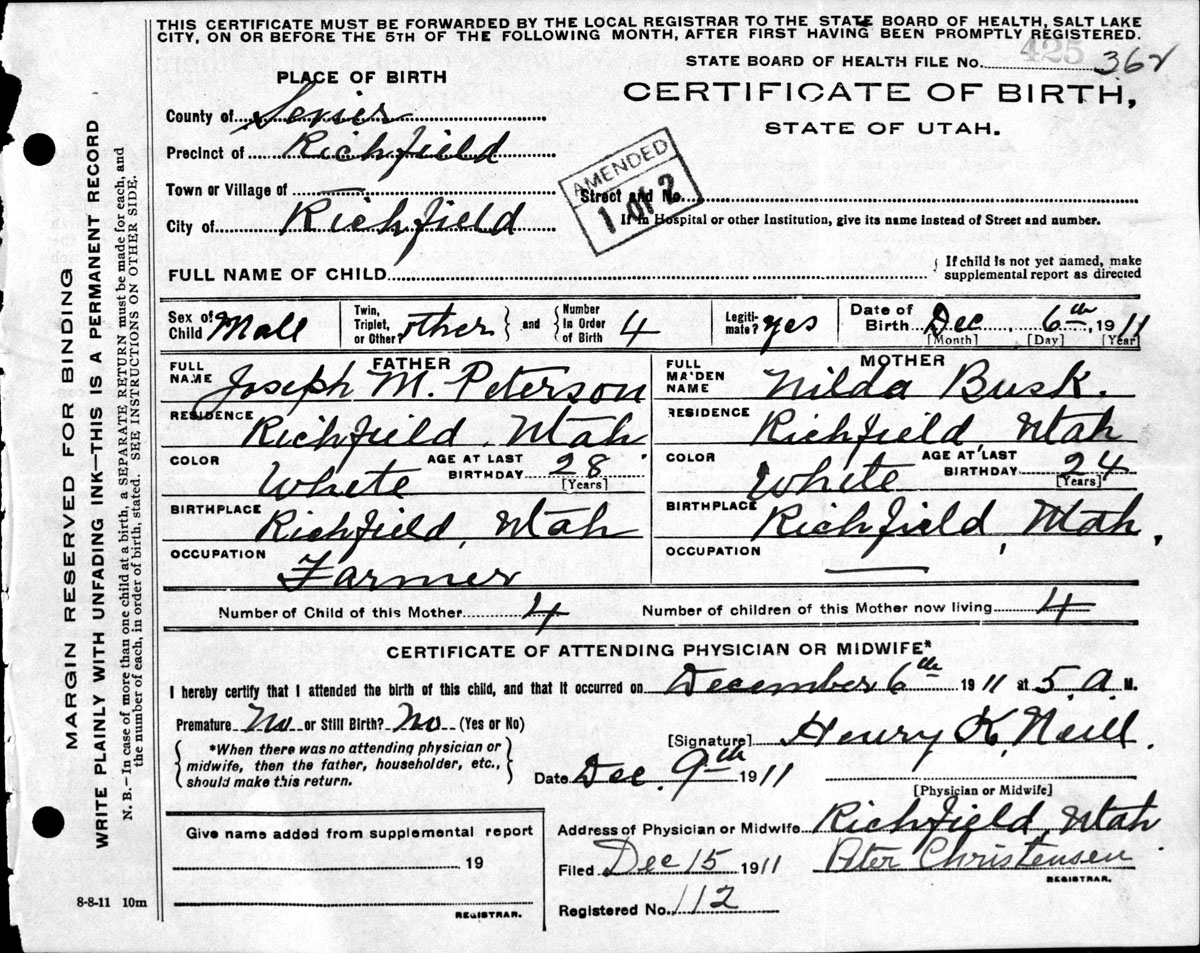 THIS CERTIFICATE MUST BE FORWARDED BY THE LOCAL REGISTRAR TO THE STATE BOARD OF HEALTH, SALT LAKE
CITY, ON OR BEFORE THE 5TH OF THE FOLLOWING MONTH, AFTER FIRST HAVING BEEN PROMPTLY REGISTERED.
425
STATE BOARD OF HEALTH FILE No. 362
PLACE OF BIRTH
CERTIFICATE OF BIRTH,
STATE OF UTAH.
County of Sevier
Precinct of Richfield
Town or Village of —
City of Richfield
AMENDED
1 OF 2
Street and No.
If in Hospital or other Institution, give its name instead of Street and number.
FULL NAME OF CHILD
{ If child is not yet named, make
supplemental report as directed
Sex of Child Male
Twin, Triplet, or Other? other } and { Number In Order of Birth 4
Legitimate? yes
Date of Birth Dec 6th, 1911
[Month] [Day] [Year]
FATHER
FULL NAME Joseph M. Peterson
RESIDENCE Richfield, Utah
COLOR White AGE AT LAST BIRTHDAY 28 [Years]
BIRTHPLACE Richfield, Utah
OCCUPATION Farmer
MOTHER
FULL MAIDEN NAME Nilda Busk.
RESIDENCE Richfield, Utah
COLOR White AGE AT LAST BIRTHDAY 24 [Years]
BIRTHPLACE Richfield, Utah,
OCCUPATION —
Number of Child of this Mother 4 Number of children of this Mother now living 4
CERTIFICATE OF ATTENDING PHYSICIAN OR MIDWIFE*
I hereby certify that I attended the birth of this child, and that it occurred on December 6th 1911 at 5. A. M.
Premature No or Still Birth? No (Yes or No)
{ *When there was no attending physician or
midwife, then the father, householder, etc.,
should make this return. }
[Signature] Henry K. Neill.
Date Dec. 9th 1911
[Physician or Midwife]
Give name added from supplemental report
19
REGISTRAR.
Address of Physician or Midwife Richfield, Utah
Filed Dec 15 1911 Peter Christensen
REGISTRAR.
Registered No. 112
8-8-11 10m
MARGIN RESERVED FOR BINDING
WRITE PLAINLY WITH UNFADING INK—THIS IS A PERMANENT RECORD
N. B.— In case of more than one child at a birth, a SEPARATE RETURN must be made for each, and
the number of each, in order of birth, stated. SEE INSTRUCTIONS ON OTHER SIDE.